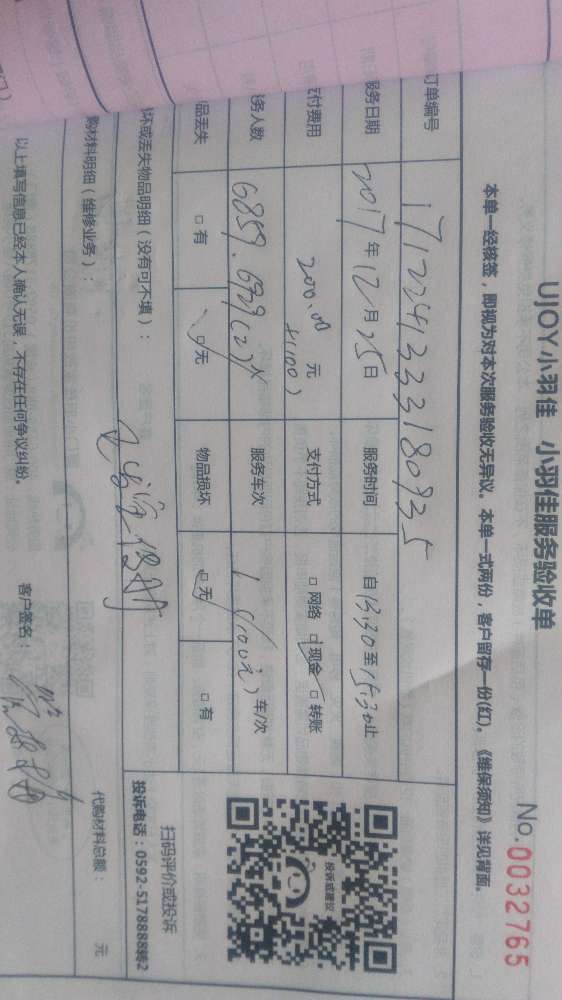 UJOY小羽佳 小羽佳服务验收单
No.0032765
本单一经核签，即视为对本次服务验收无异议。本单一式两份，客户留存一份(红)。《维保须知》详见背面。
订单编号 171224333180935
服务日期 2017年12月25日 服务时间 自13:30至15:30止
支付费用 200.00元 支付方式 □网络 □现金 □转账
务人数 6859.6929(2)人 服务车次 1(100元)车/次
品丢失 □有 □无 物品损坏 □无 □有
坏或丢失物品明细（没有可不填）：
购材料明细（维修业务）：
代购材料总额： 元
以上填写信息已经本人确认无误，不存在任何争议纠纷。 客户签名：
投诉或建议
扫码评价或投诉
投诉电话：0592-5178888转2